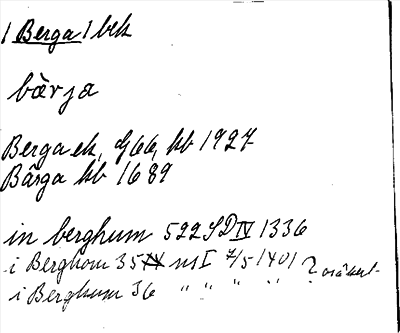 / Berga / bek
bærja
Berga ek, G66, kb 1927
Bärga kb 1689
in berghum 522 SD IV 1336
i Berghom 35 ns I 7/5 1401 ? osäkert
i Berghum 36 " " " " "